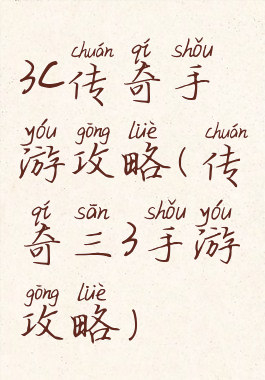 chuán qí shǒu
3C传奇手
yóu gōng lüè chuán
游攻略(传
qí sān shǒu yóu
奇三3手游
gōng lüè
攻略)